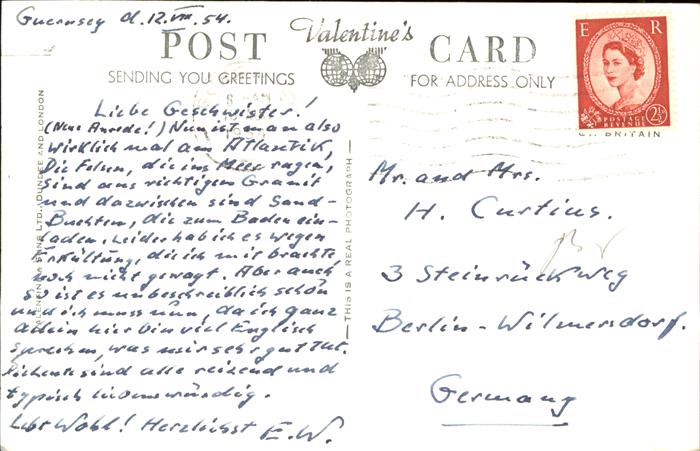 Guernsey d. 12. VIII. 54.
POST Valentine's CARD
SENDING YOU GREETINGS FOR ADDRESS ONLY
E R
POSTAGE
REVENUE
2½
BRITAIN
VALENTINE & SONS LTD., DUNDEE AND LONDON
THIS IS A REAL PHOTOGRAPH
Liebe Geschwister!
(Neue Anrede!) Nun ist man also
wirklich mal am Atlantik,
Die Felsen, die ins Meer ragen,
sind aus richtigem Granit
und dazwischen sind Sand-
Buchten, die zum Baden ein-
laden. Leider hab ich es wegen
Erkältung, die ich mit brachte
noch nicht gewagt. Aber auch
so ist es unbeschreiblich schön
und ich muss nun, da ich ganz
allein hier bin viel Englisch
sprechen, was mir sehr gut tut.
sind alle reizend und
typisch
Lebt Wohl! Herzlichst E.W.
Mr. and Mrs.
H. Curtius.
3 Steinrückweg
Berlin-Wilmersdorf.
Germany